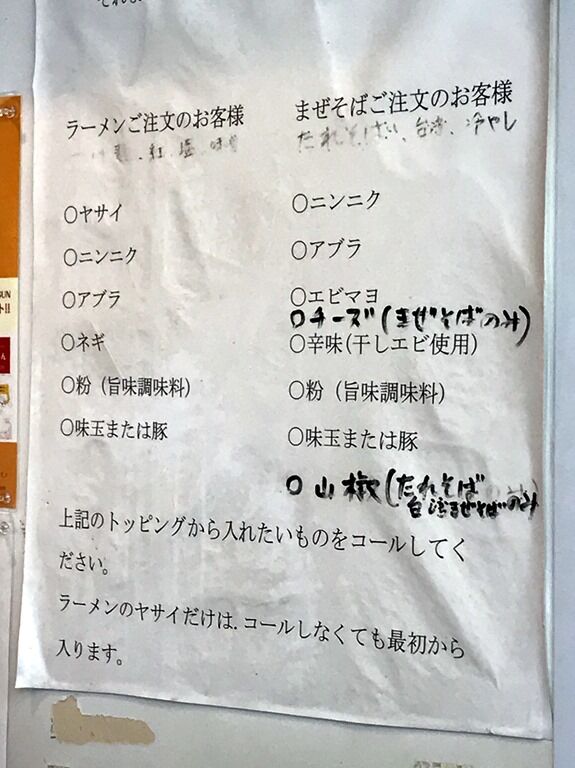 ラーメンご注文のお客様
紅、塩、味噌
○ヤサイ
○ニンニク
○アブラ
○ネギ
○粉（旨味調味料）
○味玉または豚
まぜそばご注文のお客様
たれそば、台湾、冷やし
○ニンニク
○アブラ
○エビマヨ
○チーズ(まぜそばのみ)
○辛味(干しエビ使用)
○粉（旨味調味料）
○味玉または豚
○山椒(たれそば
台湾まぜそばのみ
上記のトッピングから入れたいものをコールしてく
ださい。
ラーメンのヤサイだけは.コールしなくても最初から
入ります。